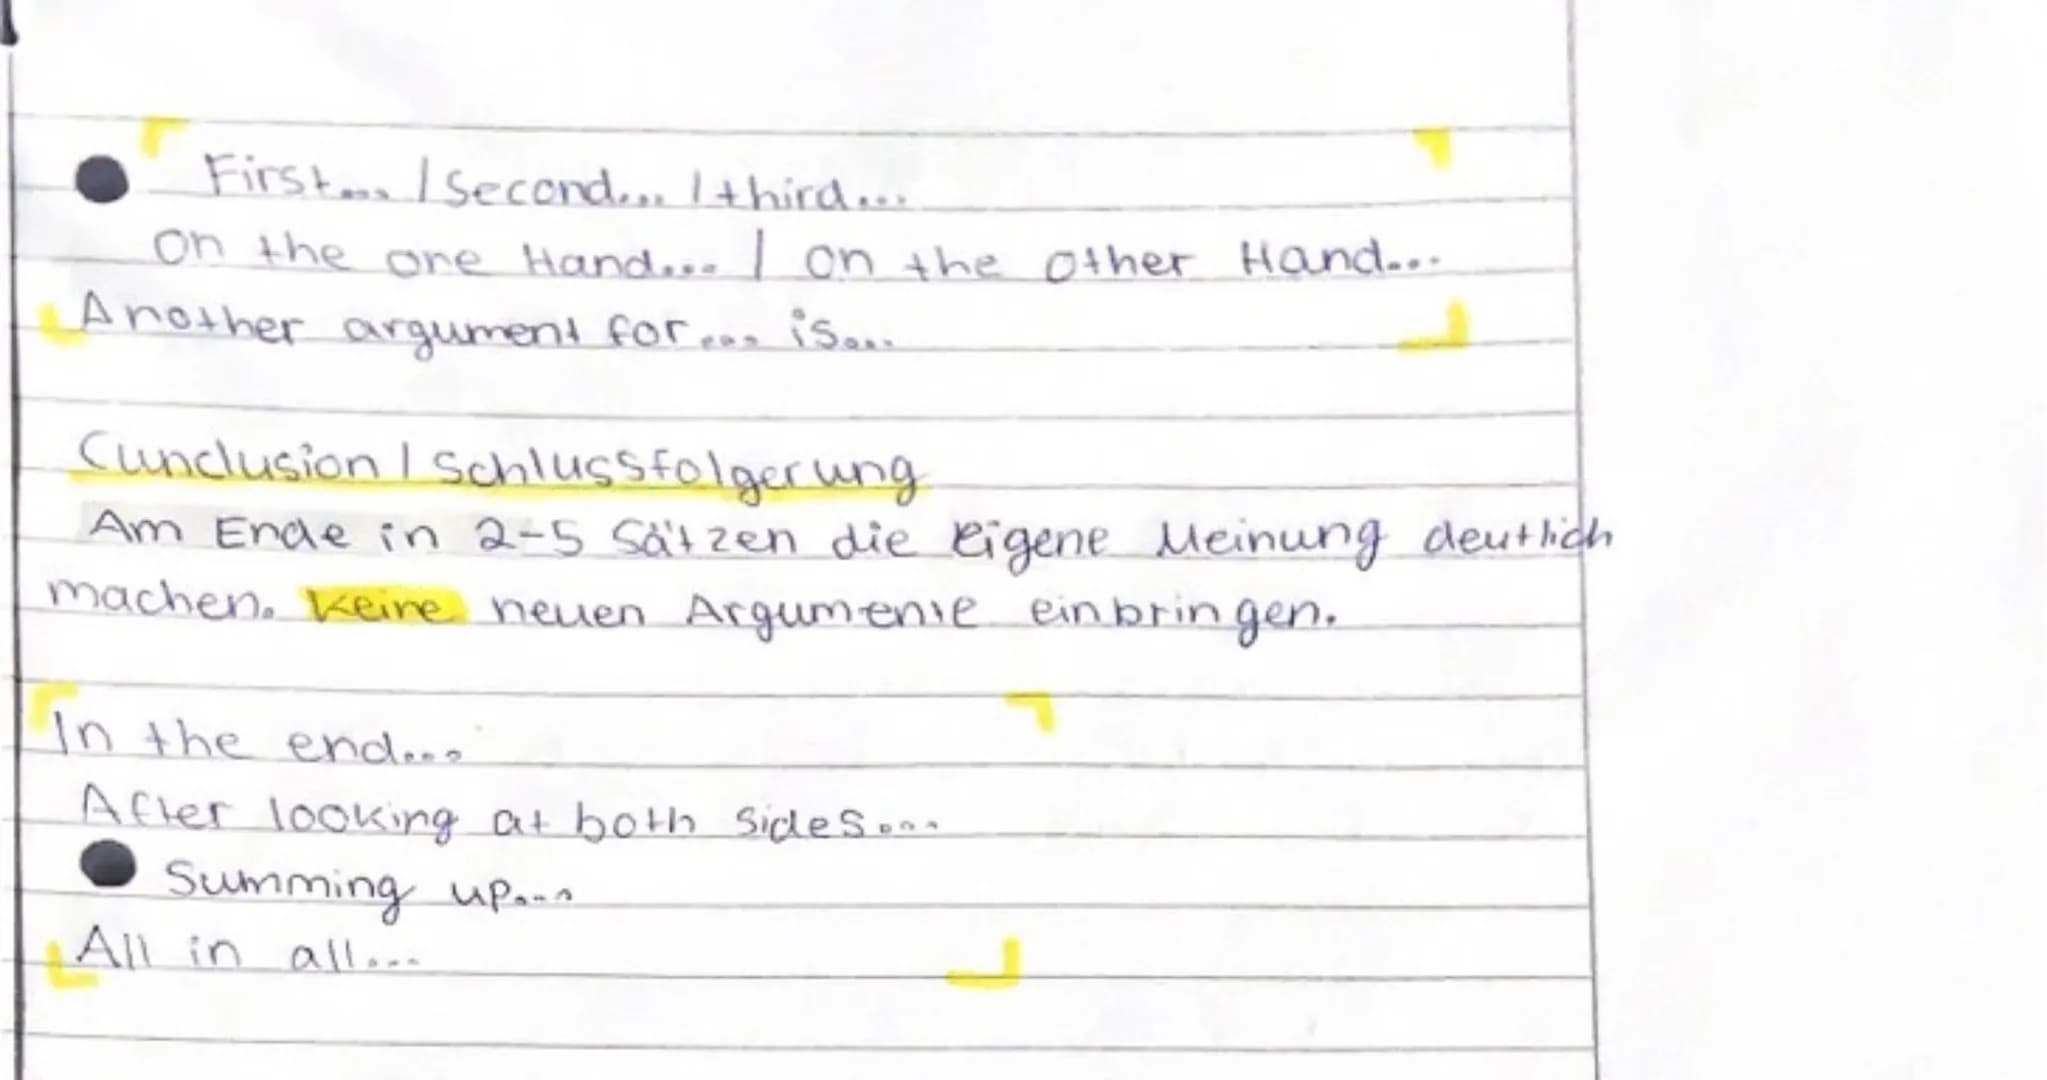 First... / Second... / third...
on the one Hand... / on the other Hand...
Another argument for... is...
Cunclusion / Schlussfolgerung
Am Ende in 2-5 Sätzen die eigene Meinung deutlich
machen. Keine neuen Argumente einbringen.
In the end...
After looking at both sides...
Summing up...
All in all...